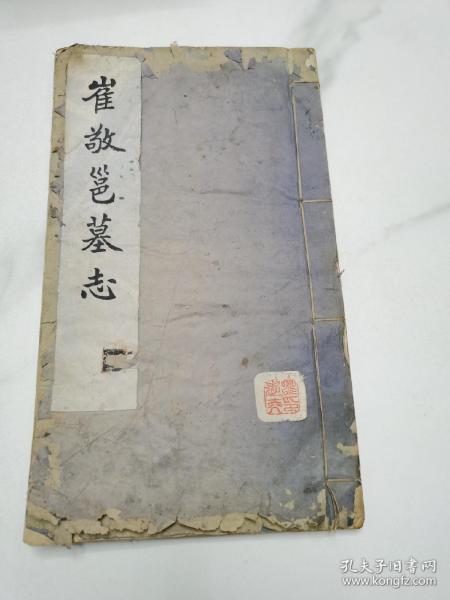 崔敬邕墓志
孔夫子旧书网
www.kongfz.com